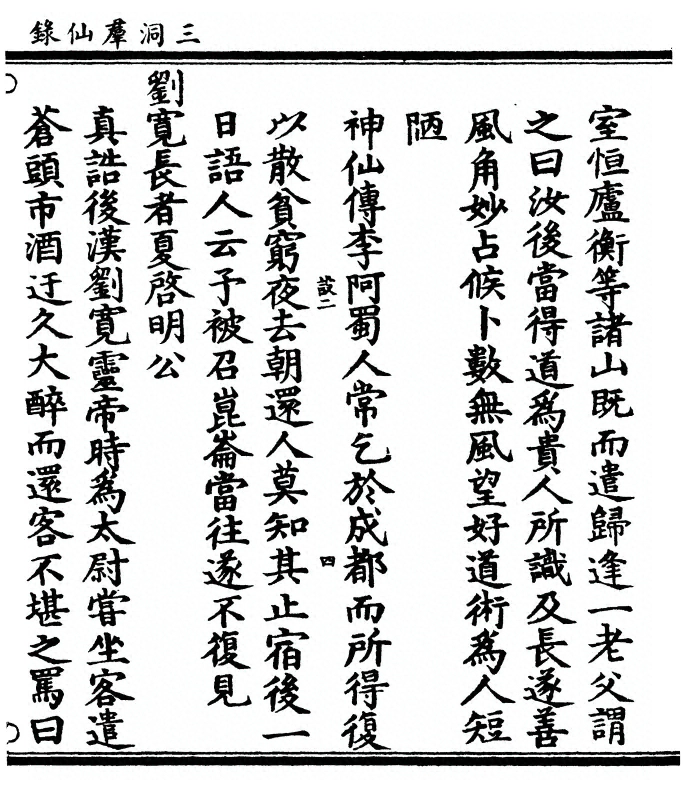 三洞羣仙錄
室恒廬衡等諸山既而遣歸逢一老父謂
之曰汝後當得道為貴人所識及長遂善
風角妙占候卜數無風望好道術為人短
陋
神仙傳李阿蜀人常乞於成都而所得復
設二
四
以散貧窮夜去朝還人莫知其止宿後一
日語人云予被召崑崙當往遂不復見
劉寬長者夏啓明公
真誥後漢劉寬靈帝時為太尉嘗坐客遣
蒼頭市酒迂久大醉而還客不堪之罵曰